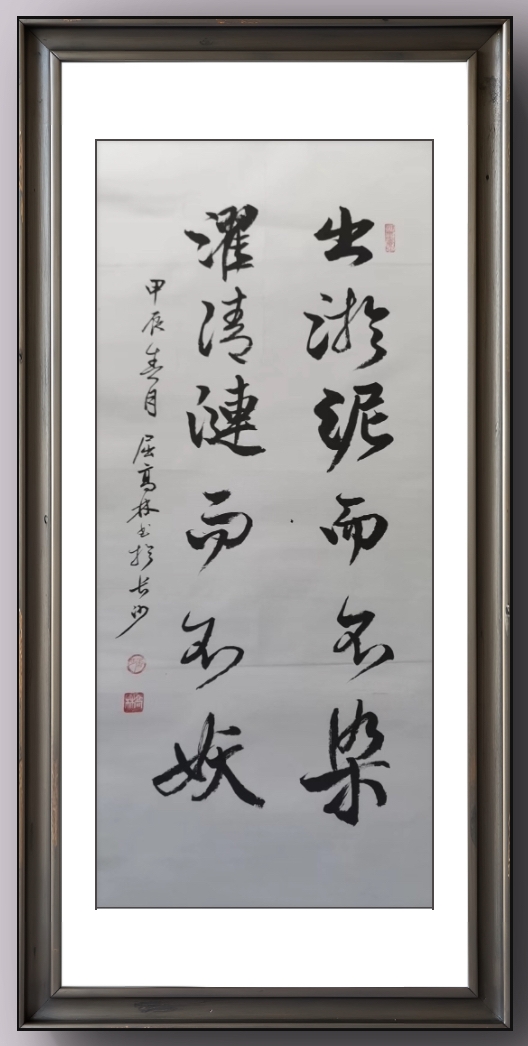 出淤泥而不染
濯清漣而不妖
甲辰春月 屈高林书於长沙